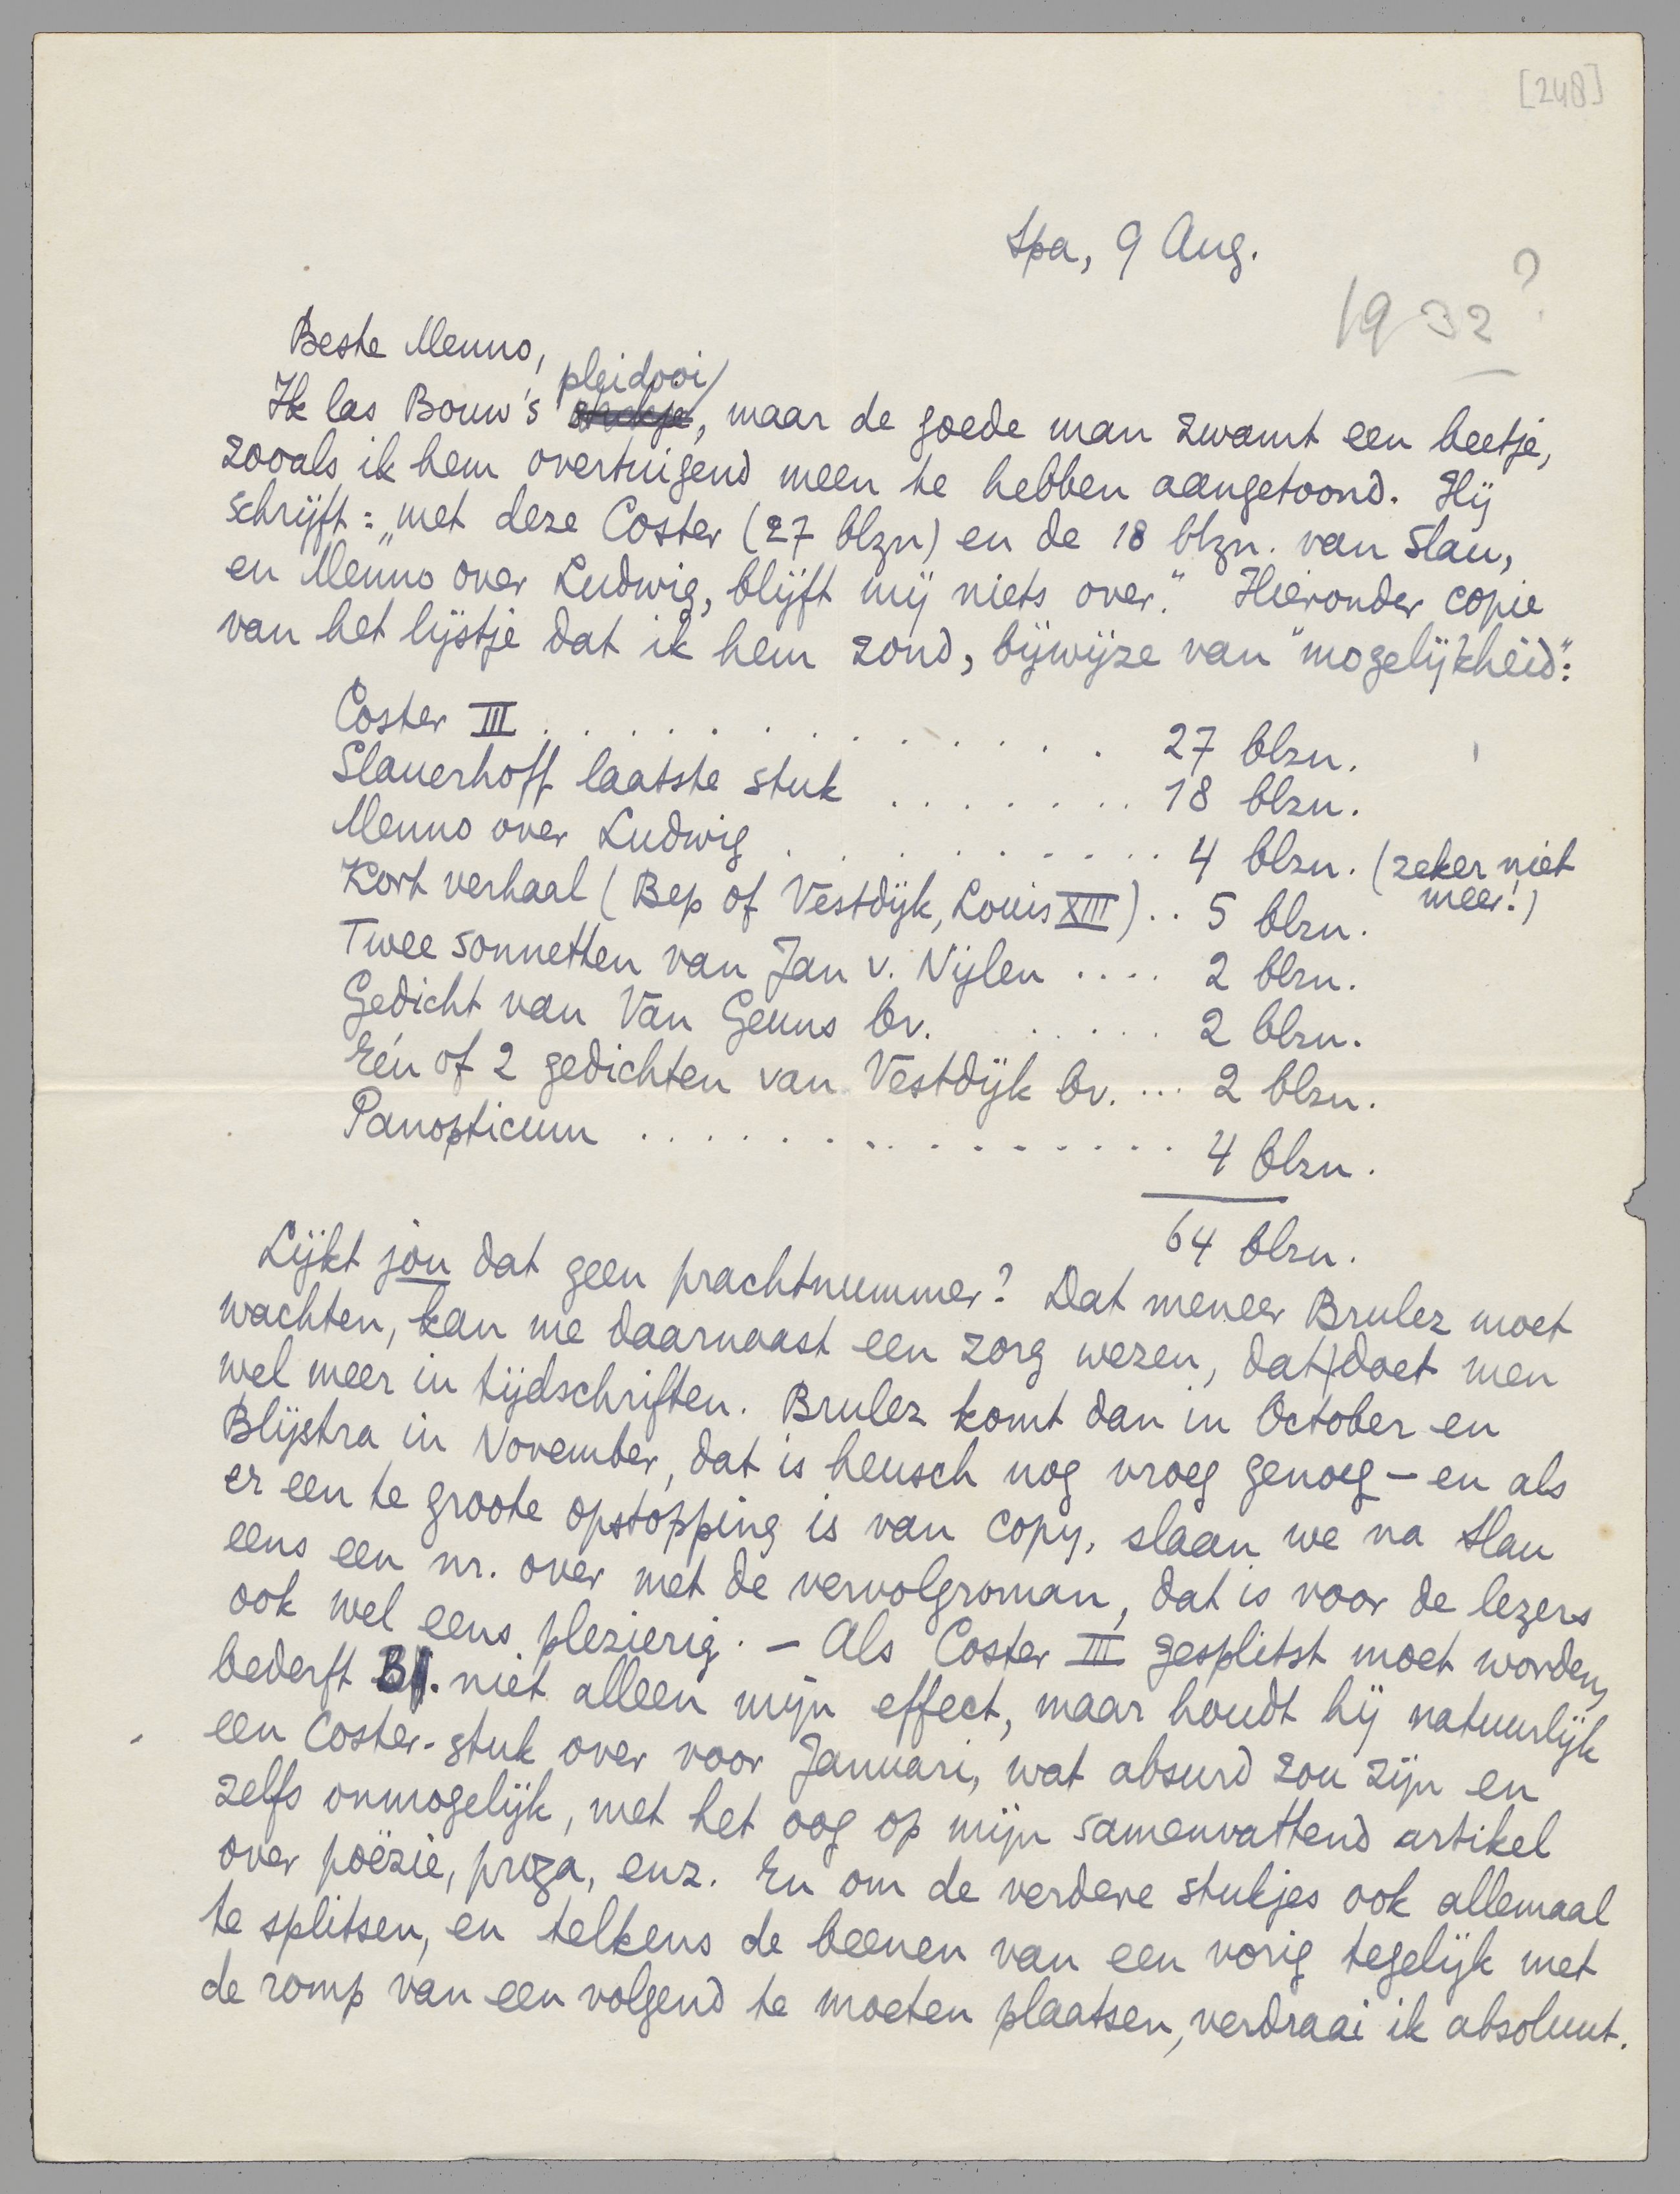 [248]
Spa, 9 Aug.
1932?
Beste Menno,
pleidooi
Ik las Bouw's stukje, maar de goede man zwamt een beetje,
zooals ik hem overtuigend meen te hebben aangetoond. Hij
schrijft: "met deze Coster (27 blzn) en de 18 blzn. van Slau,
en Menno over Ludwig, blijft mij niets over." Hieronder copie
van het lijstje dat ik hem zond, bijwijze van "mogelijkheid":
Coster III . . . . . . . . . . . . . . 27 blzn.
Slauerhoff laatste stuk . . . . . . . 18 blzn.
Menno over Ludwig . . . . . . . . . . 4 blzn. (zeker niet
meer!)
Kort verhaal (Bep of Vestdijk, Louis XIII) . . 5 blzn.
Twee sonnetten van Jan v. Nijlen . . . . 2 blzn.
Gedicht van Van Geuns bv. . . . . . 2 blzn.
Eén of 2 gedichten van Vestdijk bv. . . . 2 blzn.
Panopticum . . . . . . . . . . . . . . . 4 blzn.
64 blzn.
Lijkt jou dat geen prachtnummer? Dat meneer Brulez moet
wachten, kan me daarnaast een zorg wezen, dat doet men
wel meer in tijdschriften. Brulez komt dan in October en
Blijstra in November, dat is heusch nog vroeg genoeg – en als
er een te groote opstopping is van copy, slaan we na Slau
eens een nr. over met de vervolgroman, dat is voor de lezers
ook wel eens plezierig. – Als Coster III gesplitst moet worden,
bederft B. niet alleen mijn effect, maar houdt hij natuurlijk
een Coster-stuk over voor Januari, wat absurd zou zijn en
zelfs onmogelijk, met het oog op mijn samenvattend artikel
over poëzie, proza, enz. En om de verdere stukjes ook allemaal
te splitsen, en telkens de beenen van een vorig tegelijk met
de romp van een volgend te moeten plaatsen, verdraai ik absoluut.